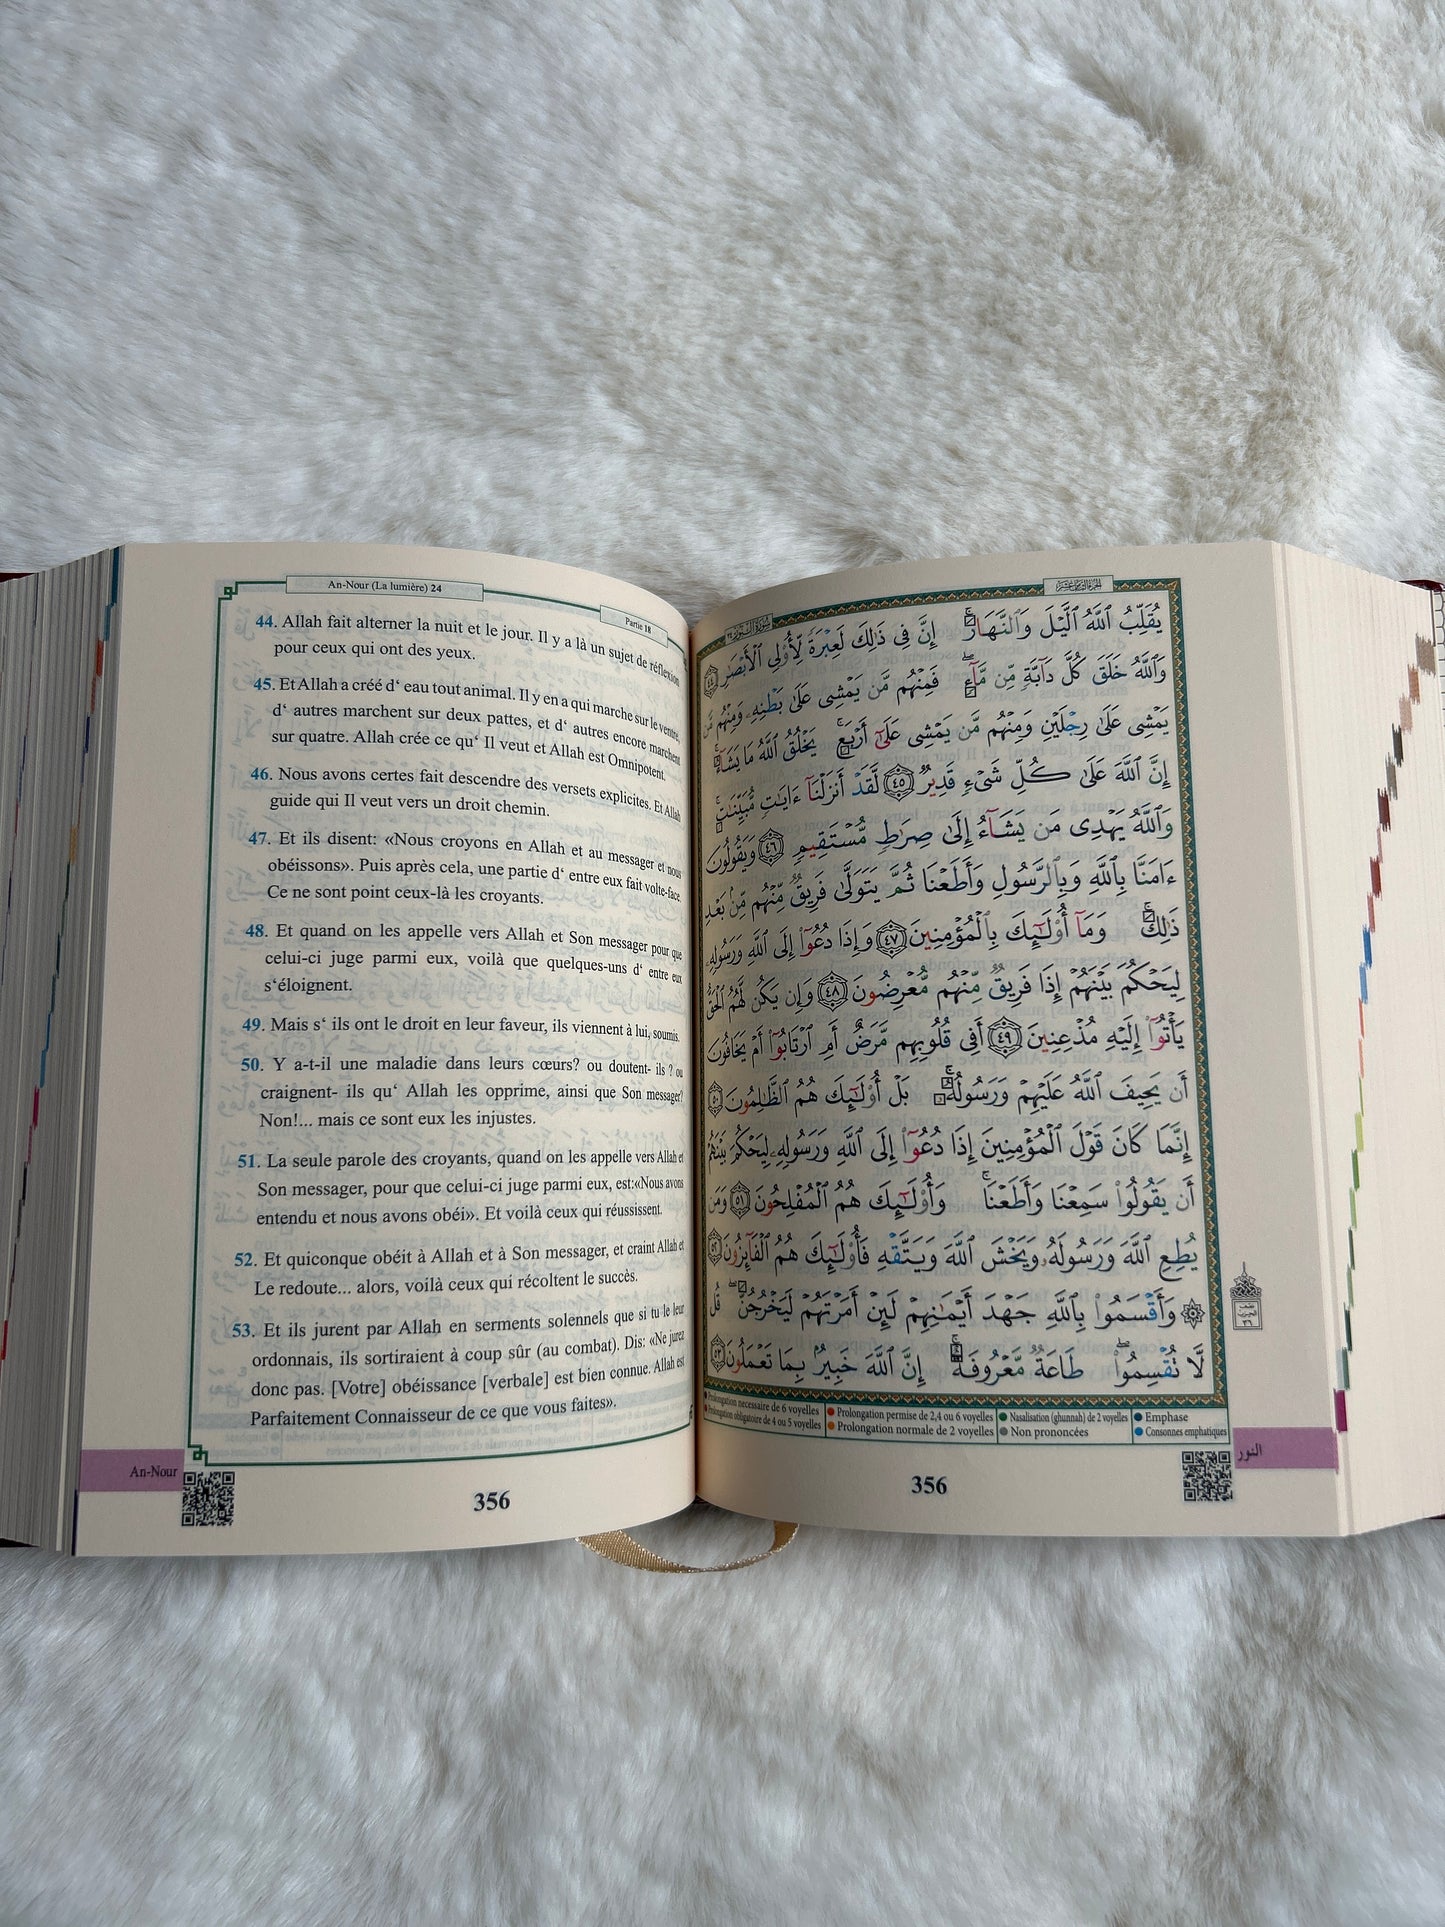 An-Nour (La lumière) 24
Partie 18
44. Allah fait alterner la nuit et le jour. Il y a là un sujet de réflexion
pour ceux qui ont des yeux.
45. Et Allah a créé d‘ eau tout animal. Il y en a qui marche sur le ventre,
d‘ autres marchent sur deux pattes, et d‘ autres encore marchent
sur quatre. Allah crée ce qu‘ Il veut et Allah est Omnipotent.
46. Nous avons certes fait descendre des versets explicites. Et Allah
guide qui Il veut vers un droit chemin.
47. Et ils disent: «Nous croyons en Allah et au messager et nous
obéissons». Puis après cela, une partie d‘ entre eux fait volte-face.
Ce ne sont point ceux-là les croyants.
48. Et quand on les appelle vers Allah et Son messager pour que
celui-ci juge parmi eux, voilà que quelques-uns d‘ entre eux
s‘éloignent.
49. Mais s‘ ils ont le droit en leur faveur, ils viennent à lui, soumis.
50. Y a-t-il une maladie dans leurs cœurs? ou doutent- ils ? ou
craignent- ils qu‘ Allah les opprime, ainsi que Son messager?
Non!... mais ce sont eux les injustes.
51. La seule parole des croyants, quand on les appelle vers Allah et
Son messager, pour que celui-ci juge parmi eux, est:«Nous avons
entendu et nous avons obéi». Et voilà ceux qui réussissent.
52. Et quiconque obéit à Allah et à Son messager, et craint Allah et
Le redoute... alors, voilà ceux qui récoltent le succès.
53. Et ils jurent par Allah en serments solennels que si tu le leur
ordonnais, ils sortiraient à coup sûr (au combat). Dis: «Ne jurez
donc pas. [Votre] obéissance [verbale] est bien connue. Allah est
Parfaitement Connaisseur de ce que vous faites».
An-Nour
356
الجزء الثامن عشر
سورة النور ٢٤
يُقَلِّبُ ٱللَّهُ ٱلَّيْلَ وَٱلنَّهَارَۚ إِنَّ فِى ذَٰلِكَ لَعِبْرَةً لِّأُو۟لِى ٱلْأَبْصَٰرِ ٤٤
وَٱللَّهُ خَلَقَ كُلَّ دَآبَّةٍ مِّن مَّآءٍۖ فَمِنْهُم مَّن يَمْشِى عَلَىٰ بَطْنِهِۦ وَمِنْهُم مَّن
يَمْشِى عَلَىٰ رِجْلَيْنِ وَمِنْهُم مَّن يَمْشِى عَلَىٰٓ أَرْبَعٍۚ يَخْلُقُ ٱللَّهُ مَا يَشَآءُۚ
إِنَّ ٱللَّهَ عَلَىٰ كُلِّ شَىْءٍ قَدِيرٌ ٤٥ لَّقَدْ أَنزَلْنَآ ءَايَٰتٍ مُّبَيِّنَٰتٍۚ
وَٱللَّهُ يَهْدِى مَن يَشَآءُ إِلَىٰ صِرَٰطٍ مُّسْتَقِيمٍ ٤٦ وَيَقُولُونَ
ءَامَنَّا بِٱللَّهِ وَبِٱلرَّسُولِ وَأَطَعْنَا ثُمَّ يَتَوَلَّىٰ فَرِيقٌ مِّنْهُم مِّنۢ بَعْدِ
ذَٰلِكَۚ وَمَآ أُو۟لَٰٓئِكَ بِٱلْمُؤْمِنِينَ ٤٧ وَإِذَا دُعُوٓا۟ إِلَى ٱللَّهِ وَرَسُولِهِۦ
لِيَحْكُمَ بَيْنَهُمْ إِذَا فَرِيقٌ مِّنْهُم مُّعْرِضُونَ ٤٨ وَإِن يَكُن لَّهُمُ ٱلْحَقُّ
يَأْتُوٓا۟ إِلَيْهِ مُذْعِنِينَ ٤٩ أَفِى قُلُوبِهِم مَّرَضٌ أَمِ ٱرْتَابُوٓا۟ أَمْ يَخَافُونَ
أَن يَحِيفَ ٱللَّهُ عَلَيْهِمْ وَرَسُولُهُۥۚ بَلْ أُو۟لَٰٓئِكَ هُمُ ٱلظَّٰلِمُونَ ٥٠
إِنَّمَا كَانَ قَوْلَ ٱلْمُؤْمِنِينَ إِذَا دُعُوٓا۟ إِلَى ٱللَّهِ وَرَسُولِهِۦ لِيَحْكُمَ بَيْنَهُمْ
أَن يَقُولُوا۟ سَمِعْنَا وَأَطَعْنَاۚ وَأُو۟لَٰٓئِكَ هُمُ ٱلْمُفْلِحُونَ ٥١ وَمَن
يُطِعِ ٱللَّهَ وَرَسُولَهُۥ وَيَخْشَ ٱللَّهَ وَيَتَّقْهِ فَأُو۟لَٰٓئِكَ هُمُ ٱلْفَآئِزُونَ ٥٢
۞ وَأَقْسَمُوا۟ بِٱللَّهِ جَهْدَ أَيْمَٰنِهِمْ لَئِنْ أَمَرْتَهُمْ لَيَخْرُجُنَّۖ قُل
لَّا تُقْسِمُوا۟ۖ طَاعَةٌ مَّعْرُوفَةٌۚ إِنَّ ٱللَّهَ خَبِيرٌۢ بِمَا تَعْمَلُونَ ٥٣
Prolongation nécessaire de 6 voyelles
Prolongation obligatoire de 4 ou 5 voyelles
Prolongation permise de 2,4 ou 6 voyelles
Prolongation normale de 2 voyelles
Nasalisation (ghunnah) de 2 voyelles
Non prononcées
Emphase
Consonnes emphatiques
النور
356